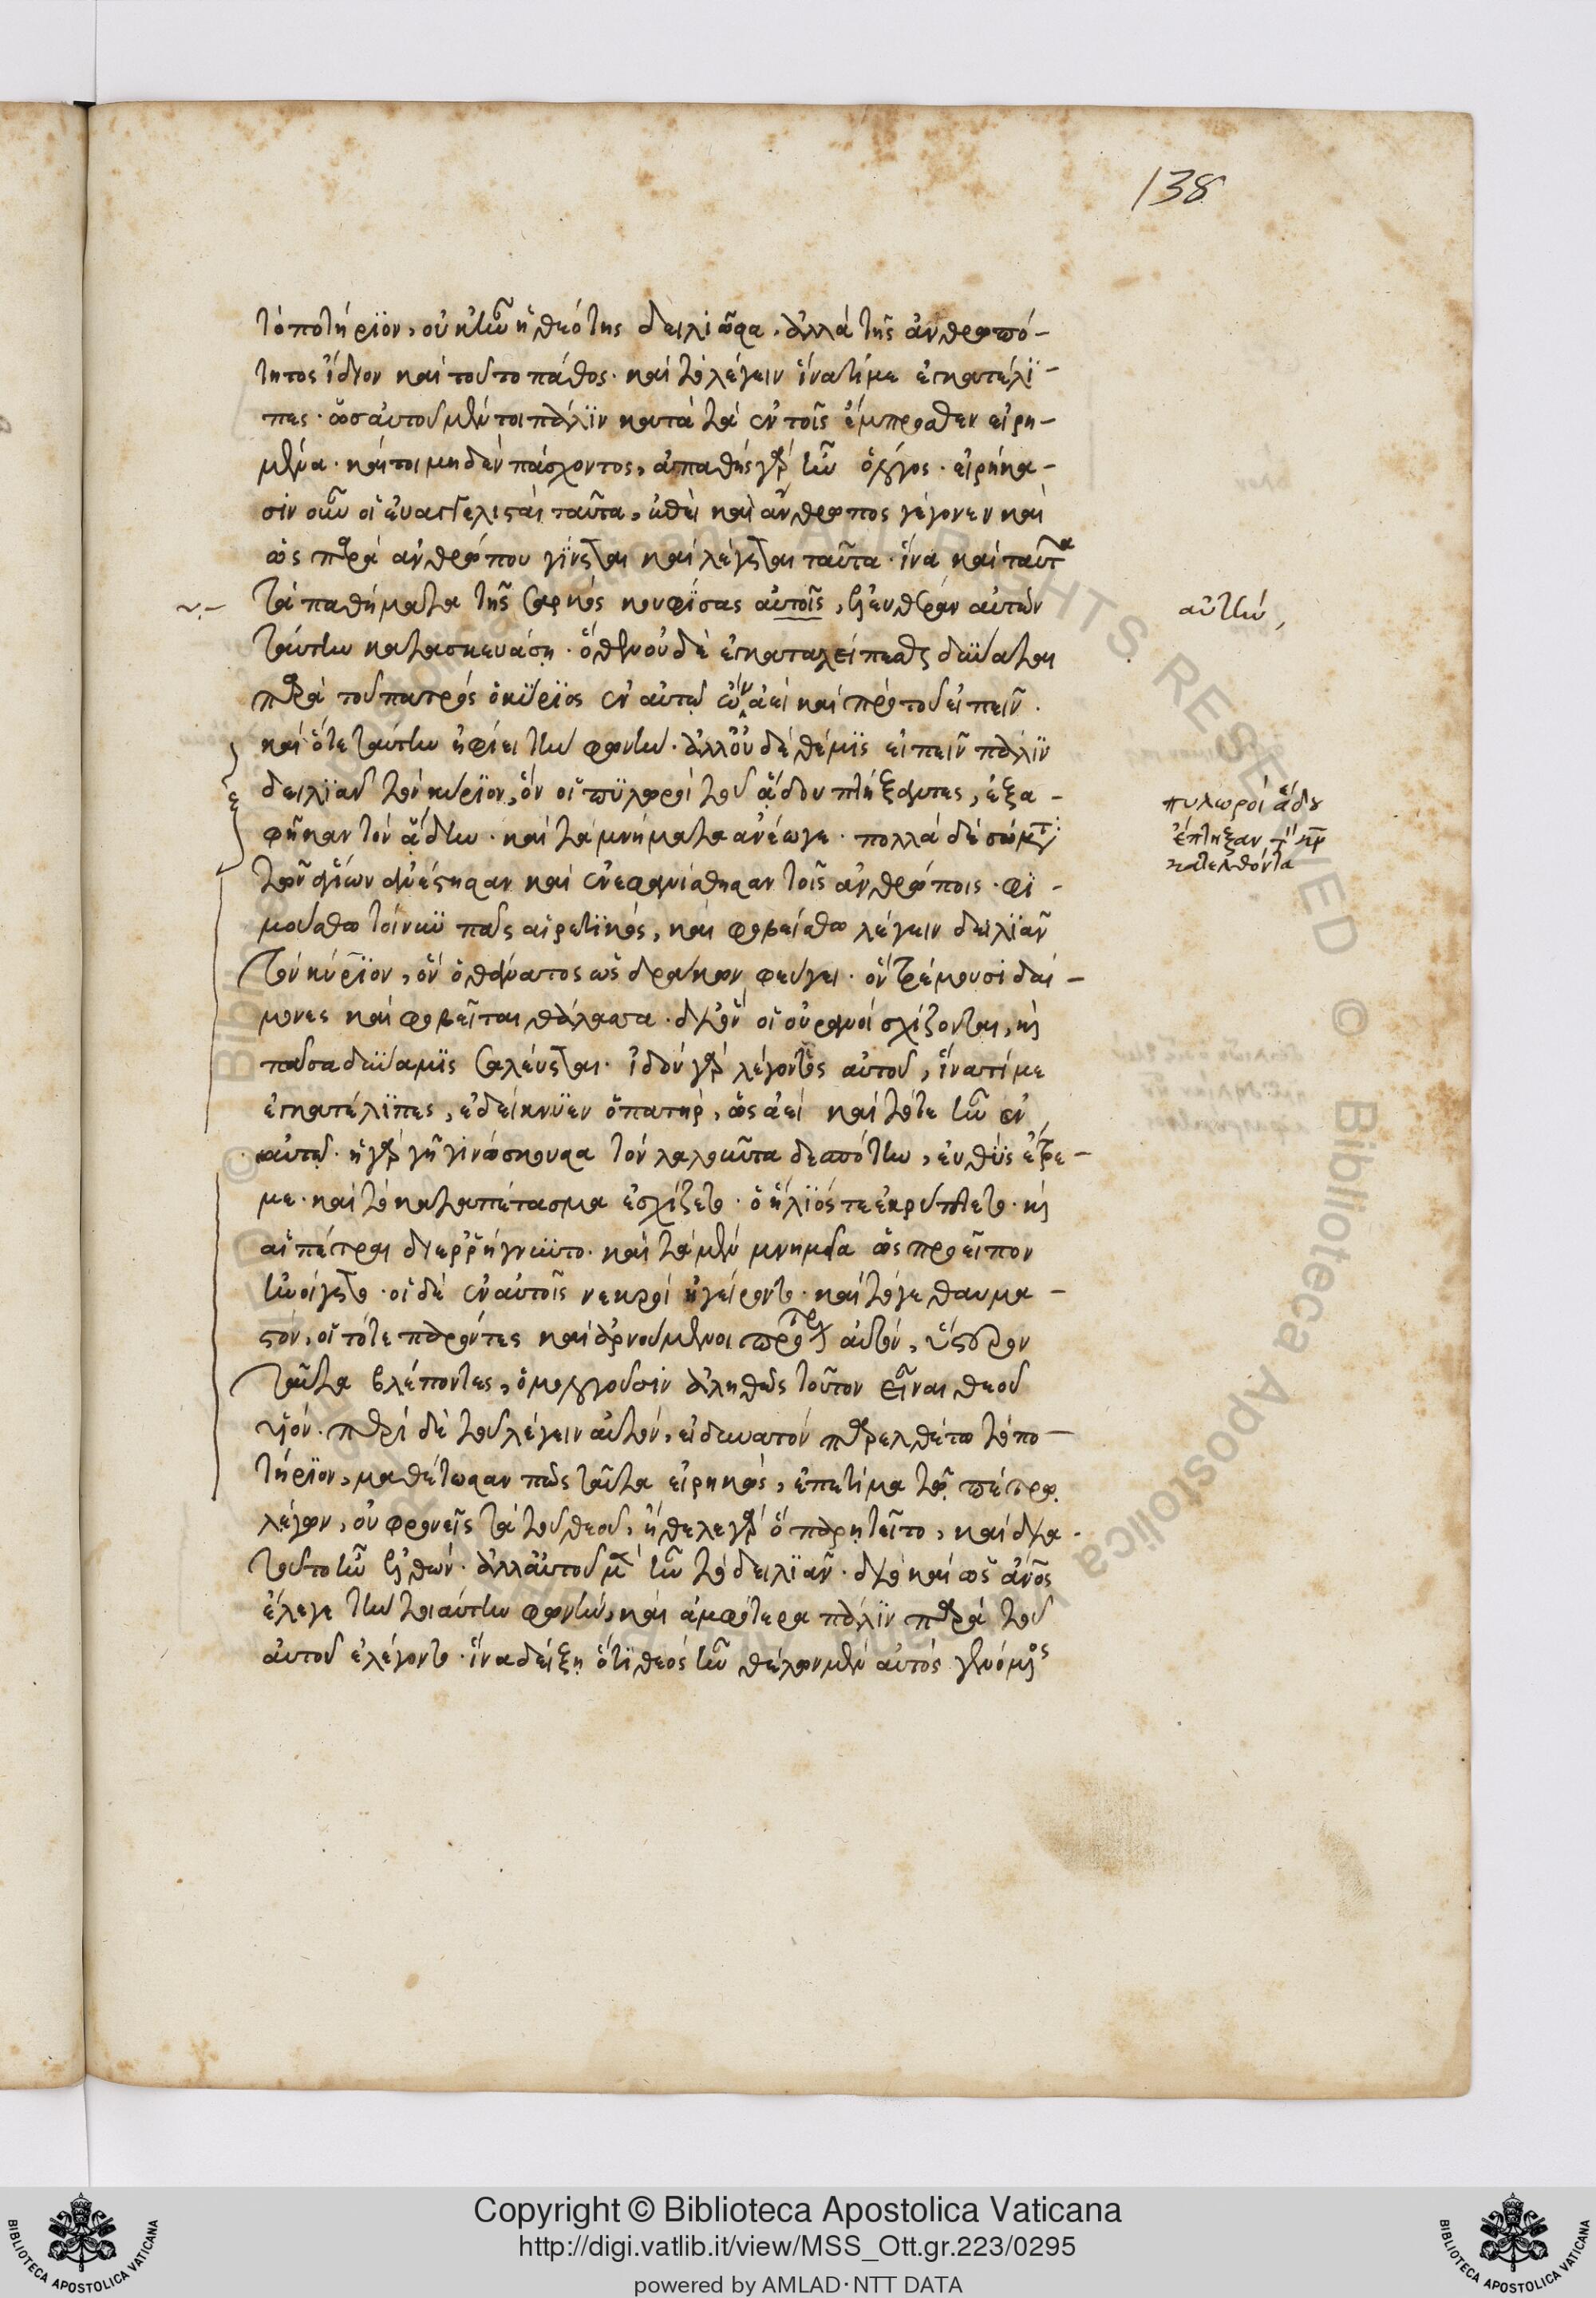 138
τὸ ποτήριον, οὐκ ἦν ἡ θεότης δειλιῶσα. ἀλλὰ τῆς ἀνθρωπό-
τητος ἴδιον καὶ τοῦτο πάθος. καὶ τὸ λέγειν ἵνα τί με ἐγκατέλι-
πες. ὡς αὐτοῦ μέν τοι πάλιν κατὰ τὰ ἐν τοῖς ἔμπροσθεν εἰρη-
μένα. καίτοι μηδὲν πάσχοντος, ἀπαθὴς γὰρ ἦν ὁ λόγος. εἰρήκα-
σιν οὖν οἱ εὐαγγελισταὶ ταῦτα, ἐπεὶ καὶ ἄνθρωπος γέγονεν καὶ
ὡς παρὰ ἀνθρώπου γίνεται καὶ λέγεται ταῦτα. ἵνα καὶ ταῦτα
τὰ παθήματα τῆς σαρκὸς κουφίσας αὐτοῖς, ἐλευθέραν αὐτῶν
ταύτην κατασκευάσῃ. ὅθεν οὐδὲ ἐγκαταλείπεσθαι δύναται
παρὰ τοῦ πατρὸς ὁ κύριος ἐν αὐτῷ ὢν ἀεὶ καὶ πρὸ τοῦ εἰπεῖν.
καὶ ὅτε ταύτην ἠφίει τὴν φωνὴν. ἀλλ' οὐδὲ θέμις εἰπεῖν πάλιν
δειλιᾶν τὸν κύριον, ὃν οἱ πυλωροὶ τοῦ ᾅδου πτήξαντες, ἐξα-
φῆκαν τὸν ᾅδην. καὶ τὰ μνήματα ἀνέωγε. πολλὰ δὲ σώματα
τῶν ἁγίων ἀνέστησαν καὶ ἐνεφανίσθησαν τοῖς ἀνθρώποις. φι-
μούσθω τοίνυν πᾶς αἱρετικός, καὶ φοβείσθω λέγειν δειλιᾶν
τὸν κύριον, ὃν ὁ θάνατος ὡς δράκων φεύγει. ὃν τρέμουσι δαί-
μονες καὶ φοβεῖται θάλασσα. δι' ὃν οἱ οὐρανοὶ σχίζονται, καὶ
πᾶσα δύναμις σαλεύεται. ἰδοὺ γὰρ λέγοντος αὐτοῦ, ἵνα τί με
ἐγκατέλιπες, ἐδείκνυεν ὁ πατὴρ, ὡς ἀεὶ καὶ τότε ἦν ἐν
αὐτῷ. ἡ γὰρ γῆ γινώσκουσα τὸν λαλοῦντα δεσπότην, εὐθὺς ἔτρε-
με. καὶ τὸ καταπέτασμα ἐσχίζετο. ὁ ἥλιός τε ἐκρύπτετο. καὶ
αἱ πέτραι διερρήγνυντο. καὶ τὰ μὲν μνημεῖα ὡς προεῖπον
ἠνοίγετο. οἱ δὲ ἐν αὐτοῖς νεκροὶ ἠγείροντο. καὶ τό γε θαυμα-
στὸν, οἱ τότε παρόντες καὶ ἀρνούμενοι πρότερον αὐτόν, ὕστερον
ταῦτα βλέποντες, ὁμολογοῦσιν ἀληθῶς τοῦτον εἶναι θεοῦ
υἱόν. περὶ δὲ τοῦ λέγειν αὐτόν, εἰ δυνατὸν παρελθέτω τὸ πο-
τήριον, μαθέτωσαν πῶς ταῦτα εἰρηκώς, ἐπετίμα τῷ πέτρῳ
λέγων, οὐ φρονεῖς τὰ τοῦ θεοῦ, ἤθελε γὰρ ὃ παρῃτεῖτο, καὶ δια-
τοῦτο ἦν ἐλθών. ἀλλ' αὐτοῦ μὲν ἦν τὸ δειλιᾶν. διὸ καὶ ὡς ἄνος
ἔλεγε τὴν τοιαύτην φωνήν, καὶ ἀμφότερα πάλιν παρὰ τοῦ
αὐτοῦ ἐλέγοντο. ἵνα δείξῃ ὅτι θεὸς ἦν θέλων μὲν αὐτὸς γενόμενος
αὐτὴν,
πυλωροὶ ᾅδου
ἔπτηξαν τὸν κν
κατελθόντα
Copyright © Biblioteca Apostolica Vaticana
http://digi.vatlib.it/view/MSS_Ott.gr.223/0295
powered by AMLAD·NTT DATA
BIBLIOTECA APOSTOLICA VATICANA
BIBLIOTECA APOSTOLICA VATICANA